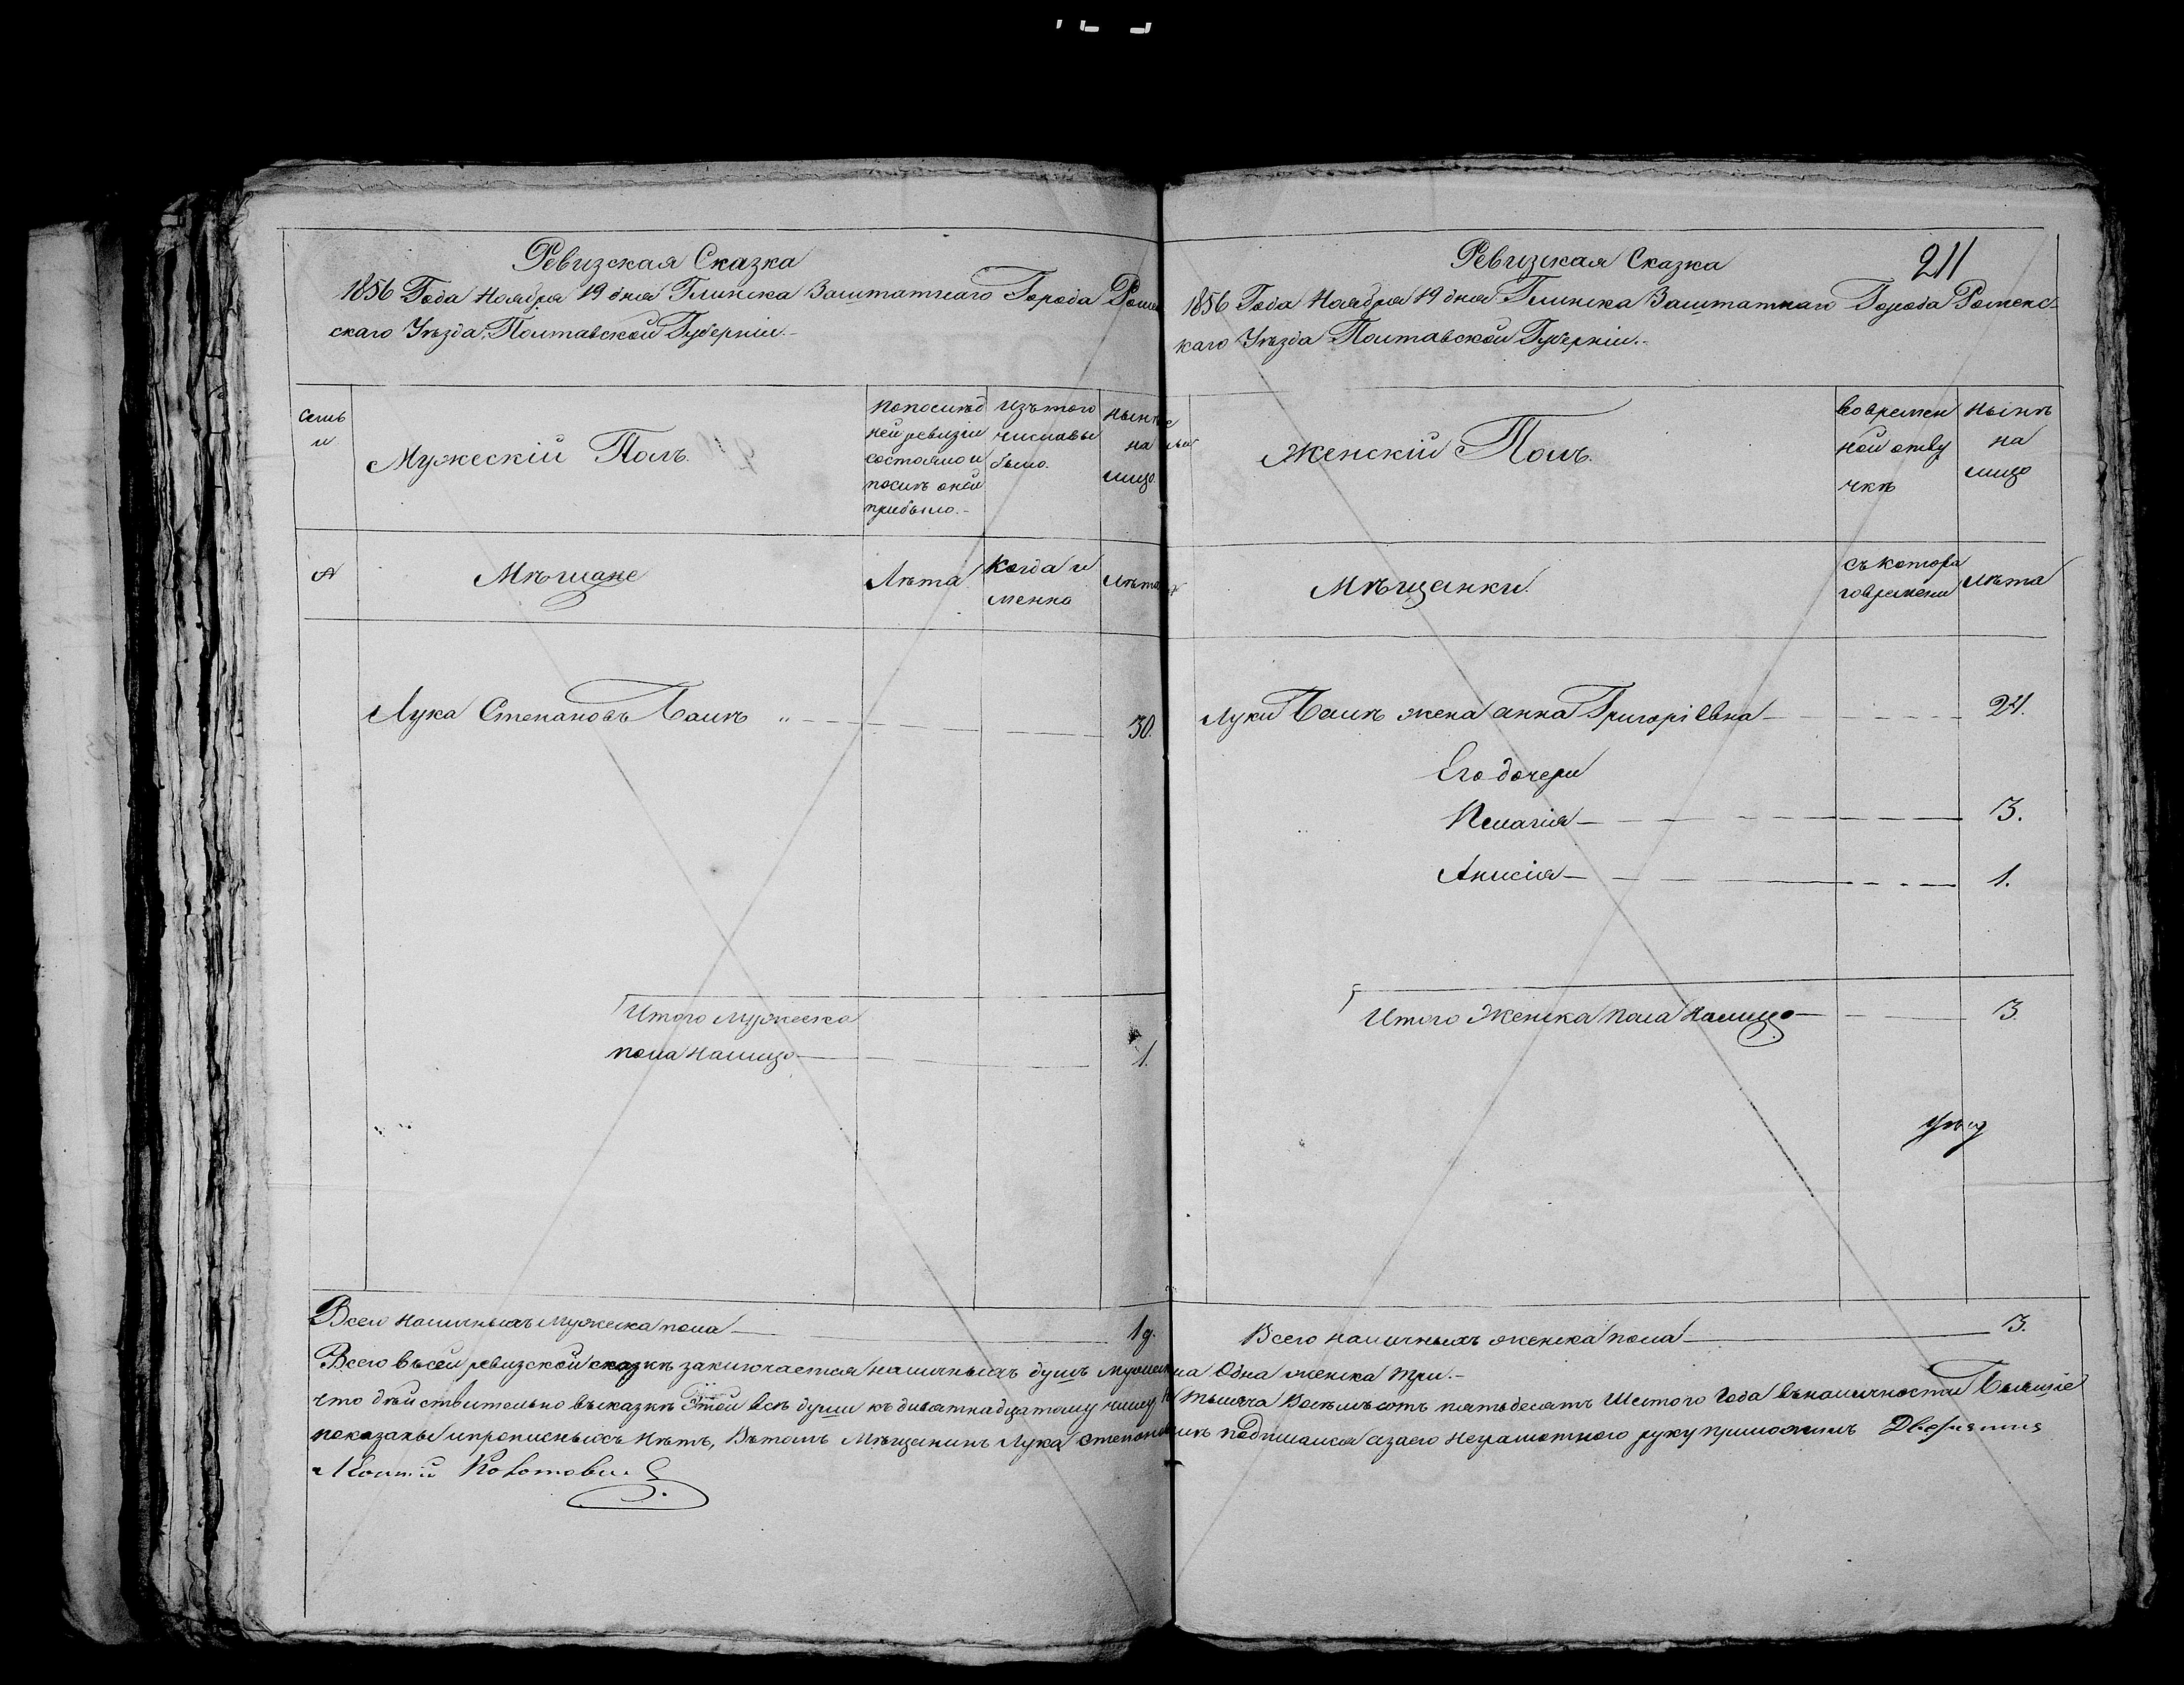 Ревизская Сказка
1856 Года Ноября 19 дня Глинска Заштатнаго Города Роме
скаго Уезда, Полтавской Губернiи.-
Семьи
Мужескiй Полъ.
По последней ревизiи состояло и после оной прибыло.-
Изъ того числа выбыло.
Ныне на лицо.
№
Мещане
Лета
Когда именно
Лета
Лука Степановъ 30.
Итого Мужеска
пола налицо 1.
Всего наличныхъ мужеска пола 1 д.
Ревизская Сказка
211
1856 Года Ноября 19 дня Глинска Заштатнаго Города Роменс-
каго Уѣзда Полтавской Губернiи.-
Женскiй Полъ.
Во временной отлучкѣ
Нынѣ на лицо
Мѣщанки.
Съ котораго времени
Лѣта
Луки жена анна Григорiевна 24.
Его дочери
Пелагiя 3.
Анисiя 1.
Итого Женска пола налицо 3.
Всего наличныхъ женска пола 3.
Всего въ сей ревизской сказкѣ заключается наличныхъ душъ мужеска Одна женска три.-
что действительно въ сказкѣ Этой всѣ души къ девятнадцатому числу тысяча Восемьсотъ пятьдесятъ Шестого Года въ наличности Бывшiе
показаны и прописныхъ нѣтъ, Въ томъ Мѣщанинъ Лука подписался а за его неграмотного руку приложилъ